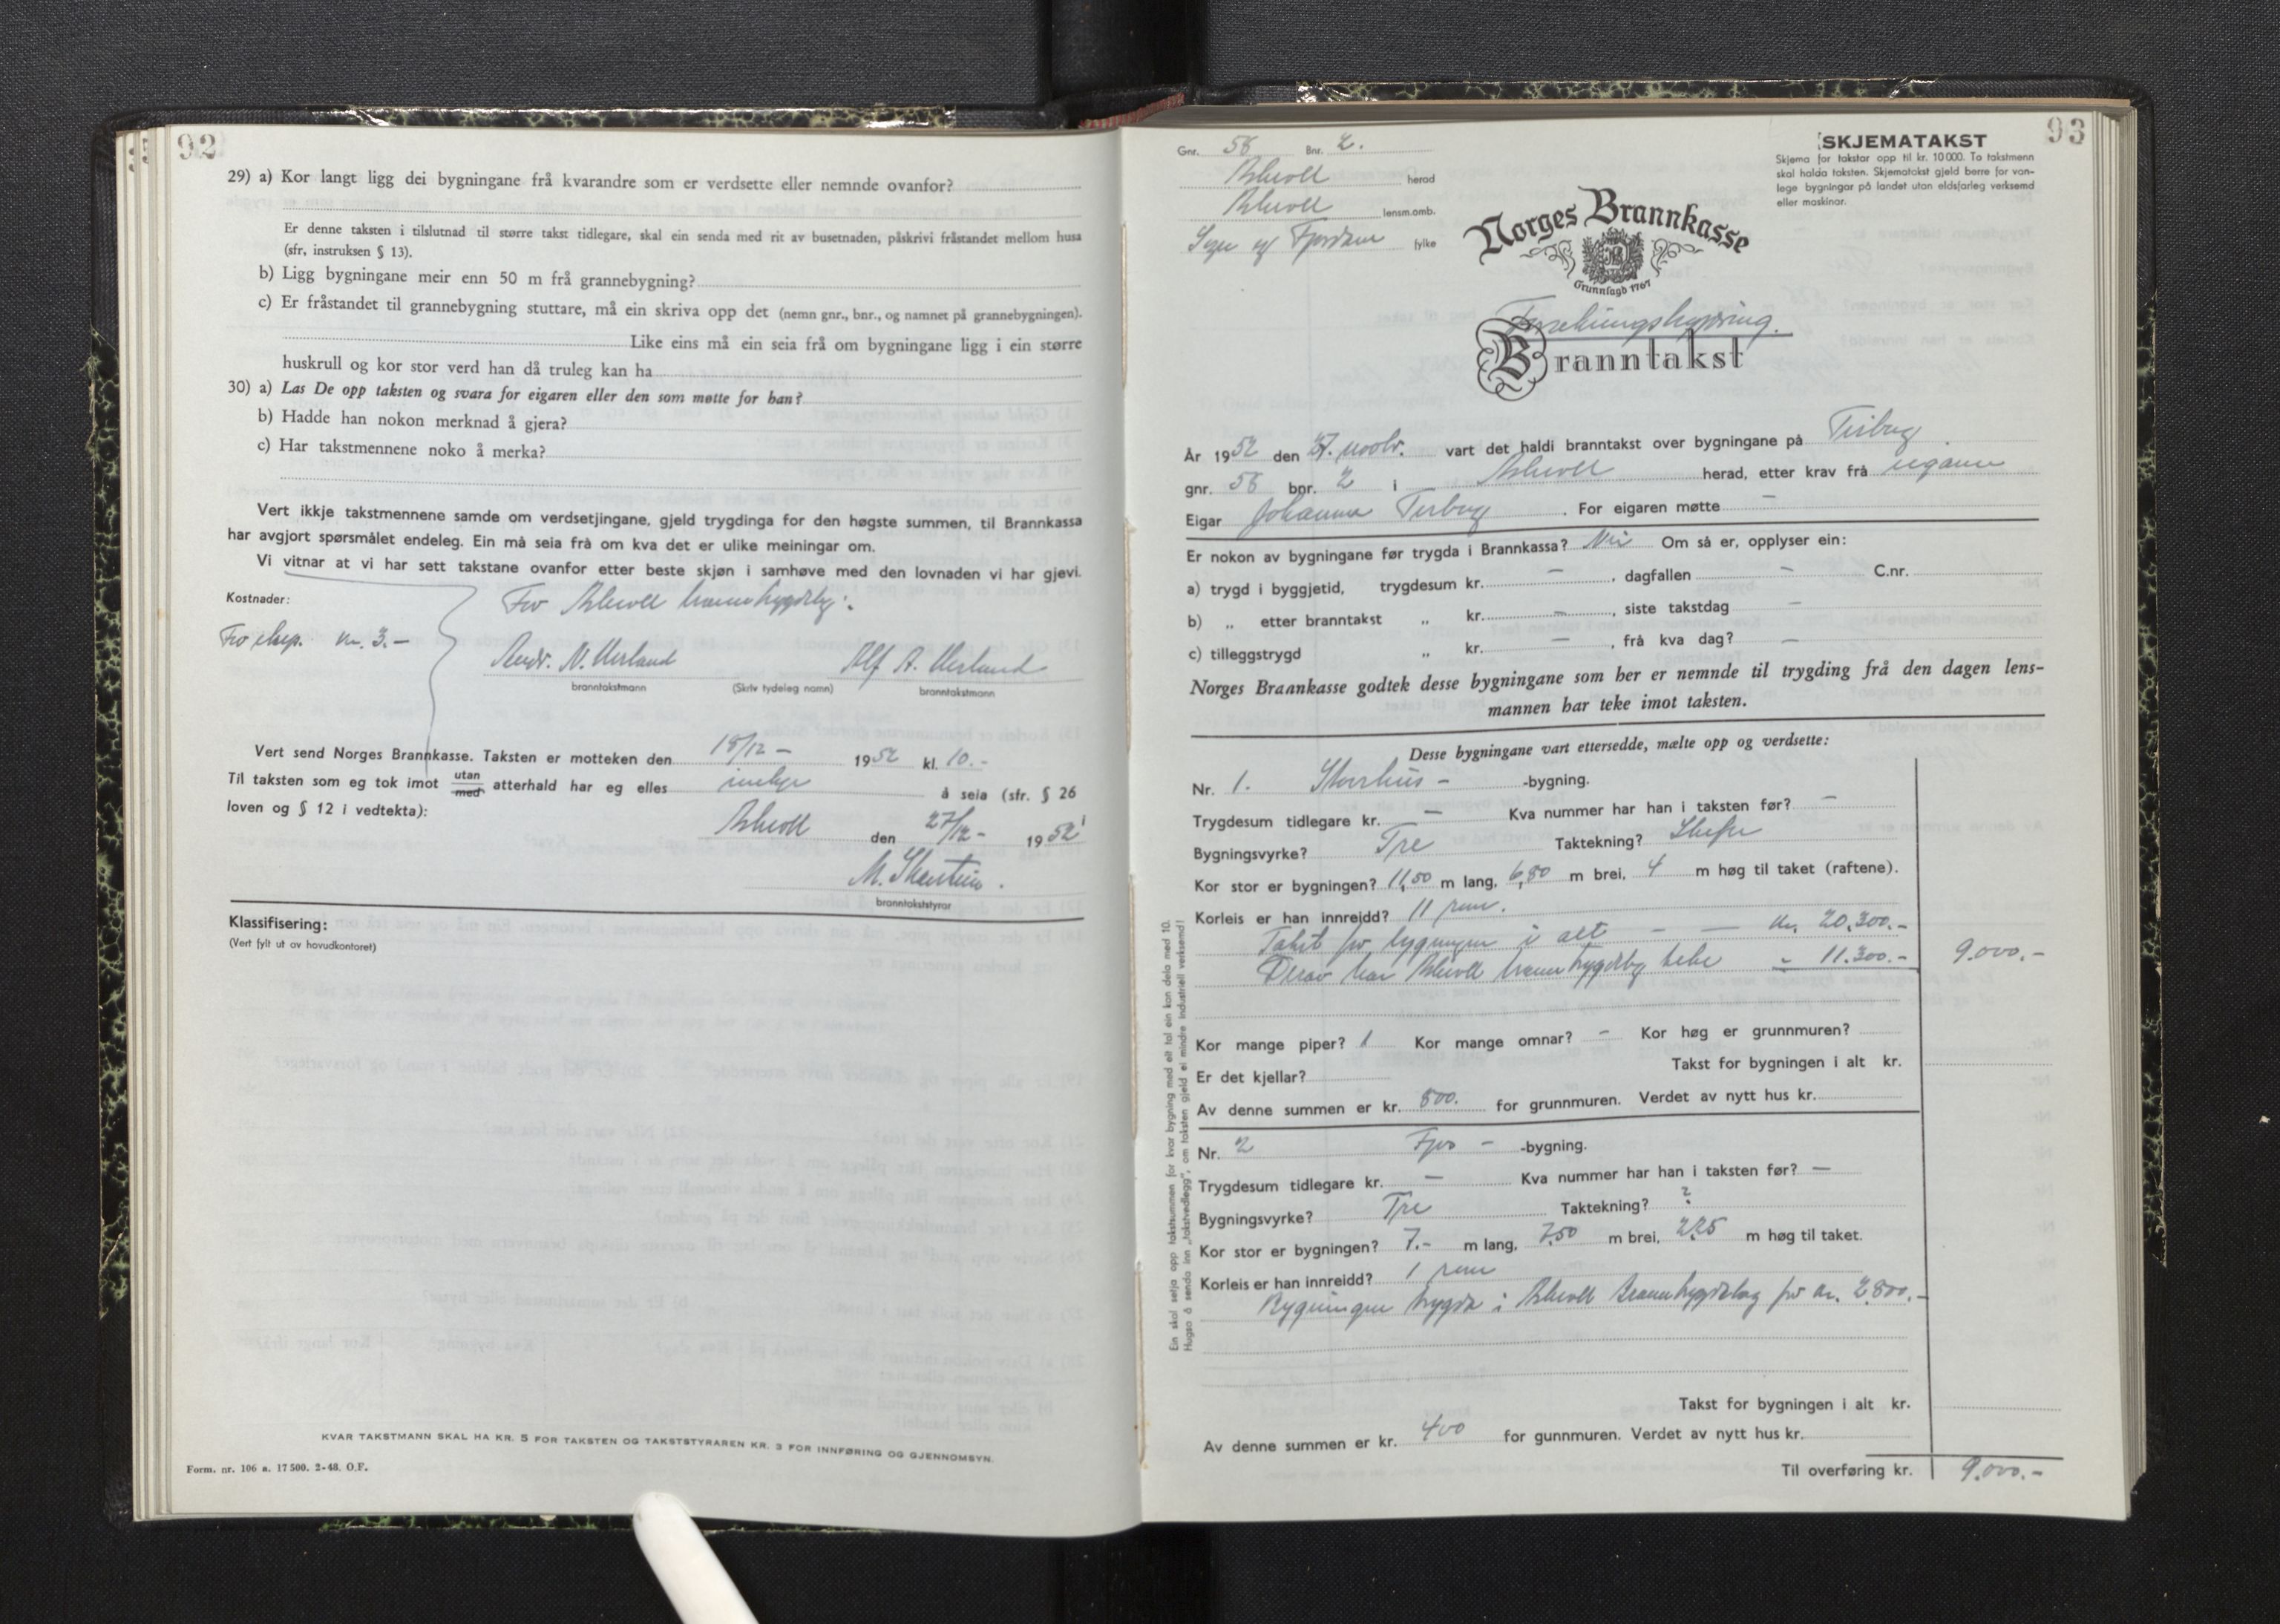 92
29) a) Kor langt ligg dei bygningane frå kvarandre som er verdsette eller nemnde ovanfor?
Er denne taksten i tilslutnad til større takst tidlegare, skal ein senda med rit av busetnaden, påskrivi fråstandet mellom husa
(sfr, instruksen § 13).
b) Ligg bygningane meir enn 50 m frå grannebygning?
c) Er fråstandet til grannebygning stuttare, må ein skriva opp det (nemn gnr., bnr., og namnet på grannebygningen).
Like eins må ein seia frå om bygningane ligg i ein større
huskrull og kor stor verd han då truleg kan ha
30) a) Las De opp taksten og svara for eigaren eller den som møtte for han?
b) Hadde han nokon merknad å gjera?
c) Har takstmennene noko å merka?
Vert ikkje takstmennene samde om verdsetjingane, gjeld trygdinga for den høgste summen, til Brannkassa
har avgjort spørsmålet endeleg. Ein må seia frå om kva det er ulike meiningar om.
Vi vitnar at vi har sett takstane ovanfor etter beste skjøn i samhøve med den lovnaden vi har gjevi.
Kostnader:
For Askvoll branntrygdelag:
For eksp. kr. 3.-
Andr. N. Werland Alf A. Werland
branntakstmann (Skriv tydeleg namn) branntakstmann
Vert send Norges Brannkasse. Taksten er motteken den 15/12 - 1952 kl. 10.-
Til taksten som eg tok imot utan med atterhald har eg elles inkje å seia (sfr. § 26
loven og § 12 i vedtekta):
Askvoll den 27/12 - 1952
M. Skarstein.
branntakststyrar
Klassifisering:
(Vert fylt ut av hovudkontoret)
KVAR TAKSTMANN SKAL HA KR. 5 FOR TAKSTEN OG TAKSTSTYRAREN KR. 3 FOR INNFØRING OG GJENNOMSYN.
Form. nr. 106 a. 17 500. 2-48. O.F.
93
Gnr. 58 Bnr. 2.
Askvoll herad
Askvoll lensm.omb.
Sogn og Fjordane fylke
SKJEMATAKST
Skjema for takstar opp til kr. 10 000. To takstmenn
skal halda taksten. Skjematakst gjeld berre for van-
lege bygningar på landet utan eldsfarleg verksemd
eller maskinar.
Norges Brannkasse
Grunnlagd 1767
Branntakst
År 1952 den 27. novbr. vart det haldi branntakst over bygningane på
gnr. 58 bnr. 2 i Askvoll herad, etter krav frå eigaren
Eigar Johanna For eigaren møtte -
Er nokon av bygningane før trygda i Brannkassa? Nei Om så er, opplyser ein:
a) trygd i byggjetid, trygdesum kr. - , dagfallen - C.nr.
b) „ etter branntakst „ kr. - , siste takstdag -
c) tilleggstrygd „ kr. - , frå kva dag? -
Norges Brannkasse godtek desse bygningane som her er nemnde til trygding frå den dagen lens-
mannen har teke imot taksten.
Desse bygningane vart ettersedde, mælte opp og verdsette:
Nr. 1. -bygning.
Trygdesum tidlegare kr. - Kva nummer har han i taksten før? -
Bygningsvyrke? Tre Taktekning? Skifer
Kor stor er bygningen? 11,50 m lang, 6,80 m brei, 4 m høg til taket (raftene).
Korleis er han innreidd? 11 rom.
Takst for bygningen i alt - - kr. 20.300.-
Derav har Askvoll branntrygdelag teke - 11.300.- 9.000.-
Kor mange piper? 1 Kor mange omnar? - Kor høg er grunnmuren?
Er det kjellar? Takst for bygningen i alt kr.
Av denne summen er kr. 800. for grunnmuren. Verdet av nytt hus kr.
Nr. 2 Fjos - -bygning.
Trygdesum tidlegare kr. - Kva nummer har han i taksten før? -
Bygningsvyrke? Tre Taktekning? ?
Kor stor er bygningen? 7.- m lang, 7,50 m brei, 2,25 m høg til taket.
Korleis er han innreidd? 1 rom
Bygningen trygda i Askvoll branntrygdelag for kr. 2.800.-
Takst for bygningen i alt kr.
Av denne summen er kr. 400 for gunnmuren. Verdet av nytt hus kr.
Til overføring kr. 9.000.-
Ein skal setja opp takstsummen for kvar bygning med eit tal ein kan dela med 10.
Hugso å senda inn „takstvedlegg", om taksten gjeld ei mindre industriell verksemd!